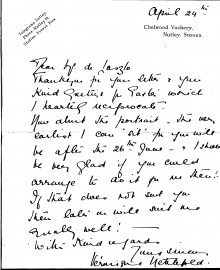 April 24th
Chelwood Vachery,
Nutley, Sussex.
Dear Mr de Laszlo
Thank you for your letter & your
kind Greetings for Easter which
I heartily reciprocate.
Now about the portrait - the very
earliest I can 'sit' for you will
be after the 26th June - & I should
be very glad if you could
arrange to do it for me then!
If that does not suit you
then later on will suit me
equally well!
With kind regards
Yours sincerely